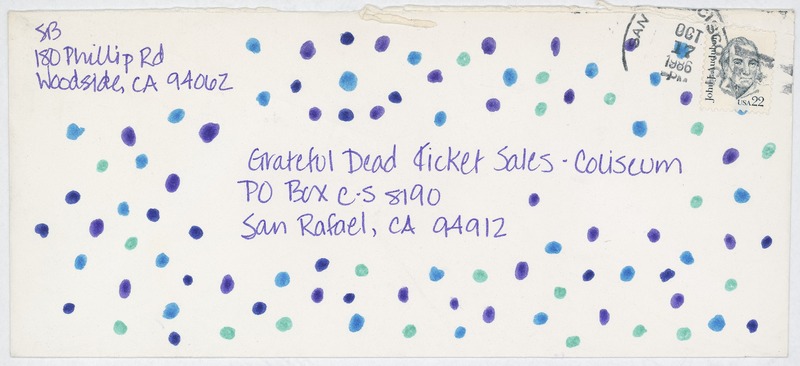 SB
180 Phillip Rd
Woodside, CA 94062
SAN FRANCISCO
OCT
17
1986
PM
John J. Audubon
USA 22
Grateful Dead Ticket Sales - Coliseum
PO Box C-S 8190
San Rafael, CA 94912